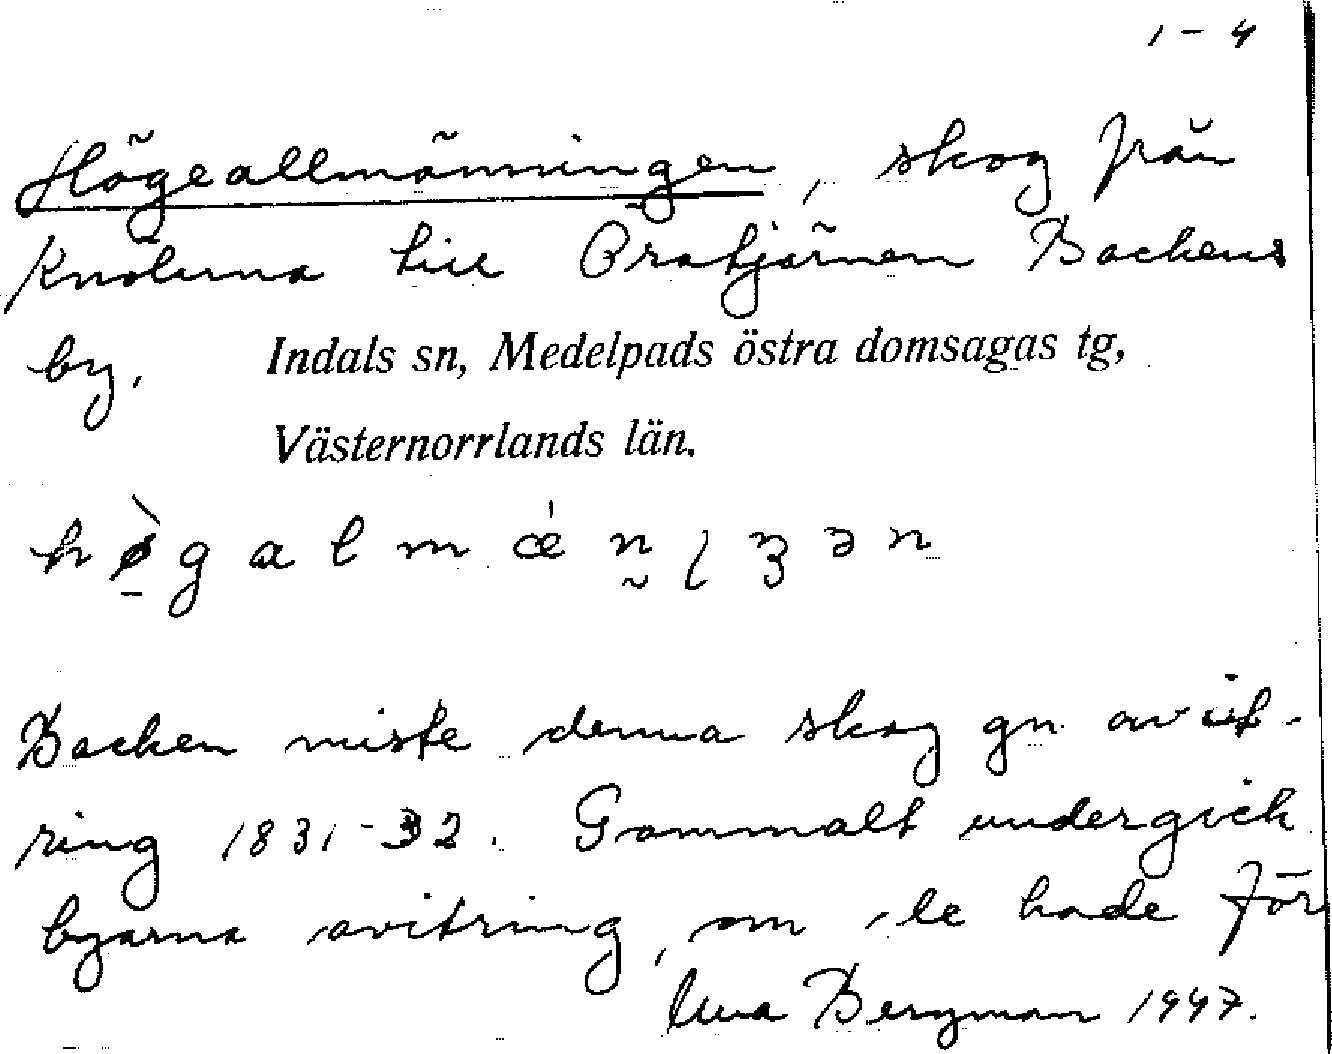 1-4
Högeallmänningen, skog från
Knölarna till Oratjärnen Backens
by. Indals sn, Medelpads östra domsagas tg,
Västernorrlands län.
Backen miste denna skog gn. avvit-
ring 1831-32. Gammalt undergick
byarna avvitring, om de hade för
Bergman 1947.